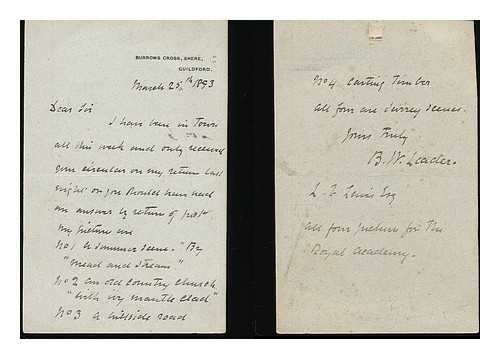 BURROWS CROSS, SHERE,
GUILDFORD.
March 25th 1893
Dear Sir
I have been in Town
all this week and only received
your circular on my return last
night or you should have had
an answer by return of post.
My pictures are
No 1 A summer scene. "By
"mead and stream"
No 2 an old country church
"with ivy mantle clad"
No 3 A hillside road
No 4 Carting Timber
All four are Surrey scenes.
Yours Truly
B. W. Leader.
L. F. Lewis Esq
all four picture for the
Royal Academy.